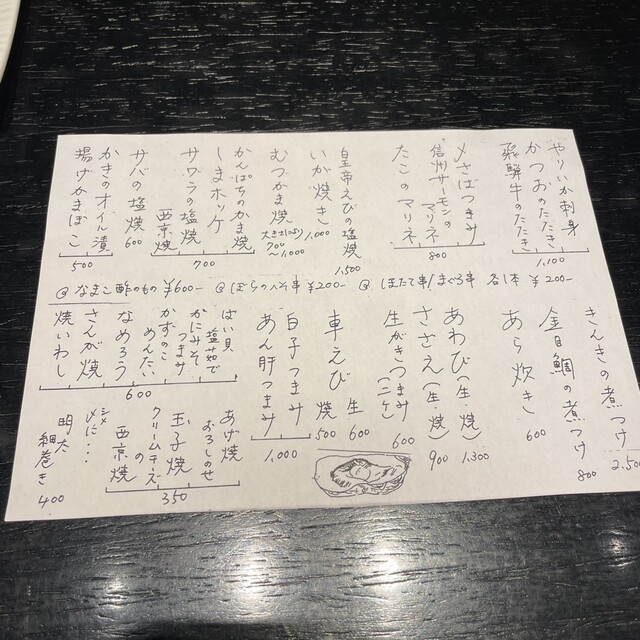 やりいか刺身
かつおのたたき
飛騨牛のたたき
1,100
〆さばつまみ
信州サーモンの
マリネ
たこのマリネ
800
皇帝えびの塩焼
1,500
いか焼き
1,000
むつかま焼
大きさにより
700
〜1,000
かんぱちのかま焼
しまホッケ
サワラの塩焼
西京焼
700
サバの塩焼
600
かきのオイル漬
揚げかまぼこ
500
@ なまこ酢のもの ¥600-
@ ぼらのへそ串 ¥200-
@ ほたて串/まぐろ串 各1本 ¥200-
きんきの煮つけ
2,500
金目鯛の煮つけ
800
あら炊き
600
あわび(生・焼)
1,300
さざえ(生・焼)
900
生がきつまみ
(二ケ)
600
車えび
生 600
焼 500
白子つまみ
あん肝つまみ
1,000
ばい貝
塩茹で
かにみそ
つまみ
かずのこ
めんたい
なめろう
さんが焼
焼いわし
600
あげ焼
おろしのせ
玉子焼
クリームチーズ
の
西京焼
350
シメ
〆に・・・
明太
網巻き
400